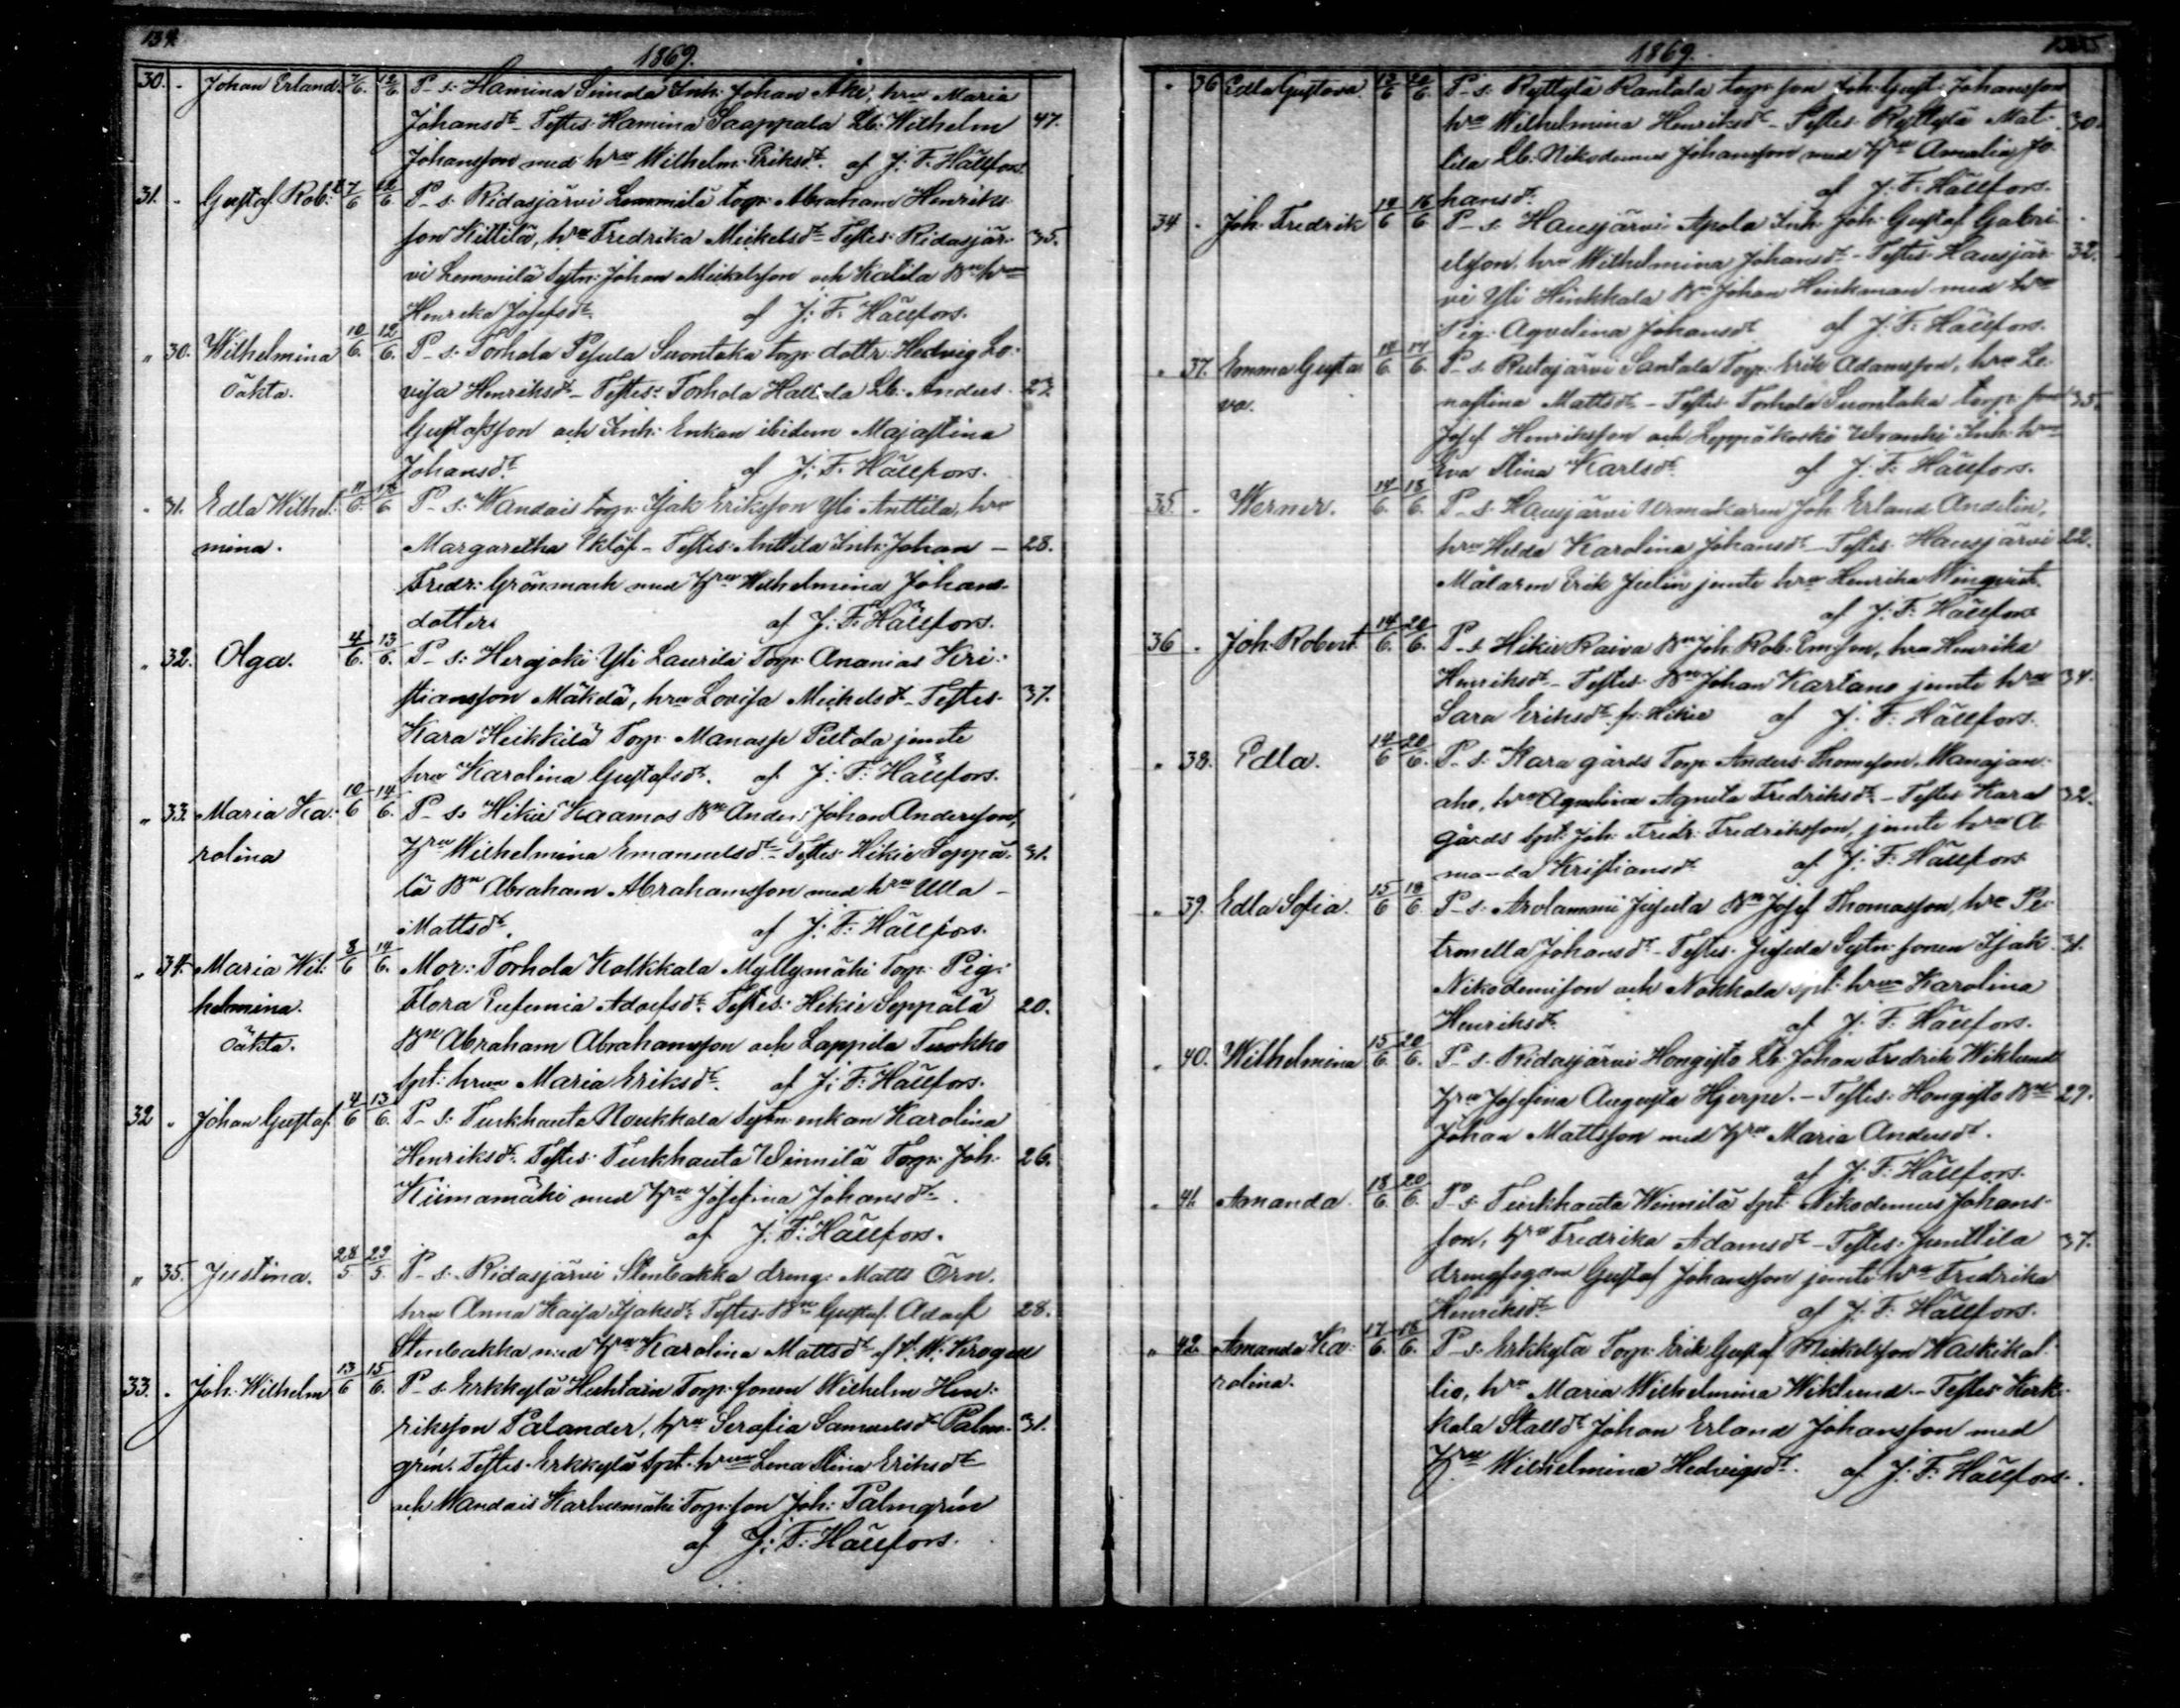 134.
1869.
30. - Johan Erland. 7/6. 12/6. P_ s: Hamina Simola Inh: Johan Åke, hru Maria
Johansdt - Testes: Hamina Saappala Lb: Wilhelm 47.
Johansson med hru Wilhelm: Eriksdt. af J: F: Hällfors.
31. - Gustaf Rob:t 7/6 12/6. P_ s: Ridasjärvi Lemmilä torp: Abraham Henriks
son Kittilä, hru Fredrika Mickelsdt - Testes: Ridasjär- 35.
vi Lemmilä Sytn: Johan Mickelsson och Kalila Bn hru
Henrika Josefsdt. af J: F: Hällfors.
" 30. Wilhelmina 10/6. 12/6. P_ s: Torhola Pesula Suontaka torp: dottr: Hedvig Lo-
oäkta. visa Henriksdt - Testes: Torhola Hallala Lb: Anders 27.
Gustafsson och Inh: Enkan ibidem Majastina
Johansdt. af J: F: Hällfors.
" 31. Edla Wilhel- 11/6. 12/6. P_ s: Wandais torp: Isak Eriksson Yli Anttila, hru
mina. Margaretha Eklöf - Testes: Anttila Inh: Johan - 28.
Fredr: Grönmark med Hru Wilhelmina Johans-
dotter. af J: F: Hällfors.
" 32. Olga. 4/6. 13/6. P_ s: Herajoki Yli Laurila Torp: Ananias Kri-
stiansson Mäkelä, hru Lovisa Mickelsdt - Testes: 37.
Kara Heikkilä Torp: Manasse Peltola jemte
hru Karolina Gustafsdt. af J: F: Hällfors.
" 33. Maria Ka- 10/6 14/6. P_ s: Hikiä Kaamos Bn Anders Johan Andersson,
rolina Hru Wilhelmina Emanuelsdt - Testes: Hikiä Seppä- 31.
lä Bn Abraham Abrahamsson med hru Ulla -
Mattsdt. af J: F: Hällfors.
" 34. Maria Wil- 8/6 14/6. Mor: Torhola Kalkkala Myllymäki Torp: Pig:
helmina. Flora Eufemia Adolfsdt. Testes: Hikiä Seppälä 20.
oäkta. Bn Abraham Abrahamsson och Lappila Tuokko
Spt: hrun Maria Eriksdt. af J: F: Hällfors.
32 " Johan Gustaf. 4/6 13/6. P_ s: Turkhauta Noukkala Sytn: enkan Karolina
Henriksdt. Testes: Turkhauta Winnilä Torp: Joh: 26.
Kiimamäki med Hru Josefina Johansdt.
af J: F: Hällfors.
" 35. Justina. 28/5. 29/5. P_ s: Ridasjärvi Stenbakka dreng: Matts Örn.
hru Anna Kaisa Isaksdt. Testes: Bn Gustaf Adolf 28.
Stenbakka med Hru Karolina Mattsdt af V: W: Kroge
33. " Joh: Wilhelm 13/6 15/6. P_ s: Erkkylä Huhtain Torp: sonen Wilhelm Hen-
riksson Palander, hru Serafia Samuelsdt Palm- 31.
grén. Testes: Erkkylä Spt: hrun Lena Stina Eriksdt
och Wandais Karhumäki Torp: son Joh: Palmgrén
af J: F: Hällfors.
1869.
" 36 Edla Gustava. 12/6 20/6. P_ s: Ryttylä Rantala torp: son Joh: Gust: Johansson
hru Wilhelmina Henriksdt - Testes: Ryttylä Mat- 30.
tila Lb: Nikodemus Johansson med Hru Amalia Jo-
hansdt. af J: F: Hällfors.
34 " Joh: Fredrik 14/6 16/6 P_ s: Hausjärvi Apola Inh: Joh: Gustaf Gabri-
elsson, hru Wilhelmina Johansdt - Testes: Hausjär- 32.
vi Yli Hinkkala Bn Johan Heickman med
Pig: Aqvelina Johansdt. af J: F: Hällfors.
" 37. Emma Gusta- 14/6. 17/6. P_ s: Rutajärvi Santala Torp: Erik Adamsson, hru Le-
va. nastina Mattsdt - Testes: Torhola Suontaka torp: son 35.
Josef Henriksson och Leppäkoski Uhranki Inh: hru
Eva Stina Karlsdt. af J: F: Hällfors.
35. " Werner. 14/6. 18/6. P_ s: Hausjärvi Urmakaren Joh: Erland Andelin,
hru Helda Karolina Johansdt - Testes: Hausjärvi 22.
Målaren Erik Julin jemte hru Henrika Winqvist.
af J: F: Hällfors.
36 " Joh: Robert. 14/6. 20/6. P_ s: Hikiä Raiva Bn Joh: Rob: Emsson, hru Henrika
Henriksdt - Testes: Bn Johan Kartano jemte hru 34.
Sara Eriksdt fr: Hikiä af J: F: Hällfors.
" 38. Edla. 14/6 20/6. P_ s: Kara gårds Torp: Anders Thomsson Manajan-
aho, hru Agneta Fredriksdt. - Testes: Kara 32.
gårds Spt: Joh: Fredr: Fredriksson, jemte hru A-
manda Kristiansdt. af J: F: Hällfors.
" 39. Edla Sofia. 15/6 18/6 P_ s: Arolammi Jussila Bn Josef Thomasson, hru Pe-
tronella Johansdt - Testes: Jussila Sytn: sonen Isak 31.
Nikodemisson och Nokkala Spt: hrun Karolina
Henriksdt. af J: F: Hällfors.
" 40. Wilhelmina 15/6. 20/6. P_ s: Ridasjärvi Hongisto Lb: Johan Fredrik Wiklund
Hru Josefina Augusta Hjerpe. - Testes: Hongisto Bn 29.
Johan Mattsson med Hru Maria Andersdt.
af J: F: Hällfors.
" 41. Amanda. 18/6. 20/6. P_ s: Turkhauta Winnilä Spt: Nikodemus Johans-
son, hru Fredrika Adamsdt - Testes: Junttila 37.
drengfogden Gustaf Johansson jemte hru Fredrika
Henriksdt. af J: F: Hällfors.
" 42. Amanda Ka- 17/6. 18/6. P_ s: Erkkylä Torp: Erik Gustaf Mickelsson Waskikal-
rolina. lio, hru Maria Wilhelmina Wiklund. - Testes: Kerk-
kola Stalldr Johan Erland Johansson med
Hru Wilhelmina Hedvigsdt. af J: F: Hällfors.